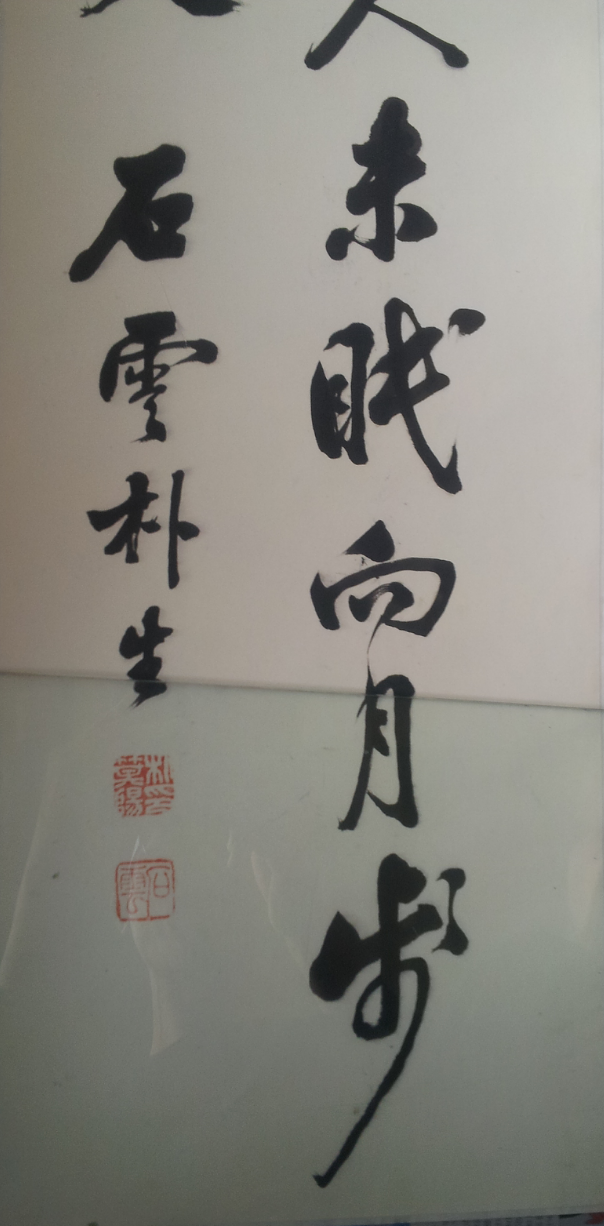 人未眠向月步
石雲朴生
石雲